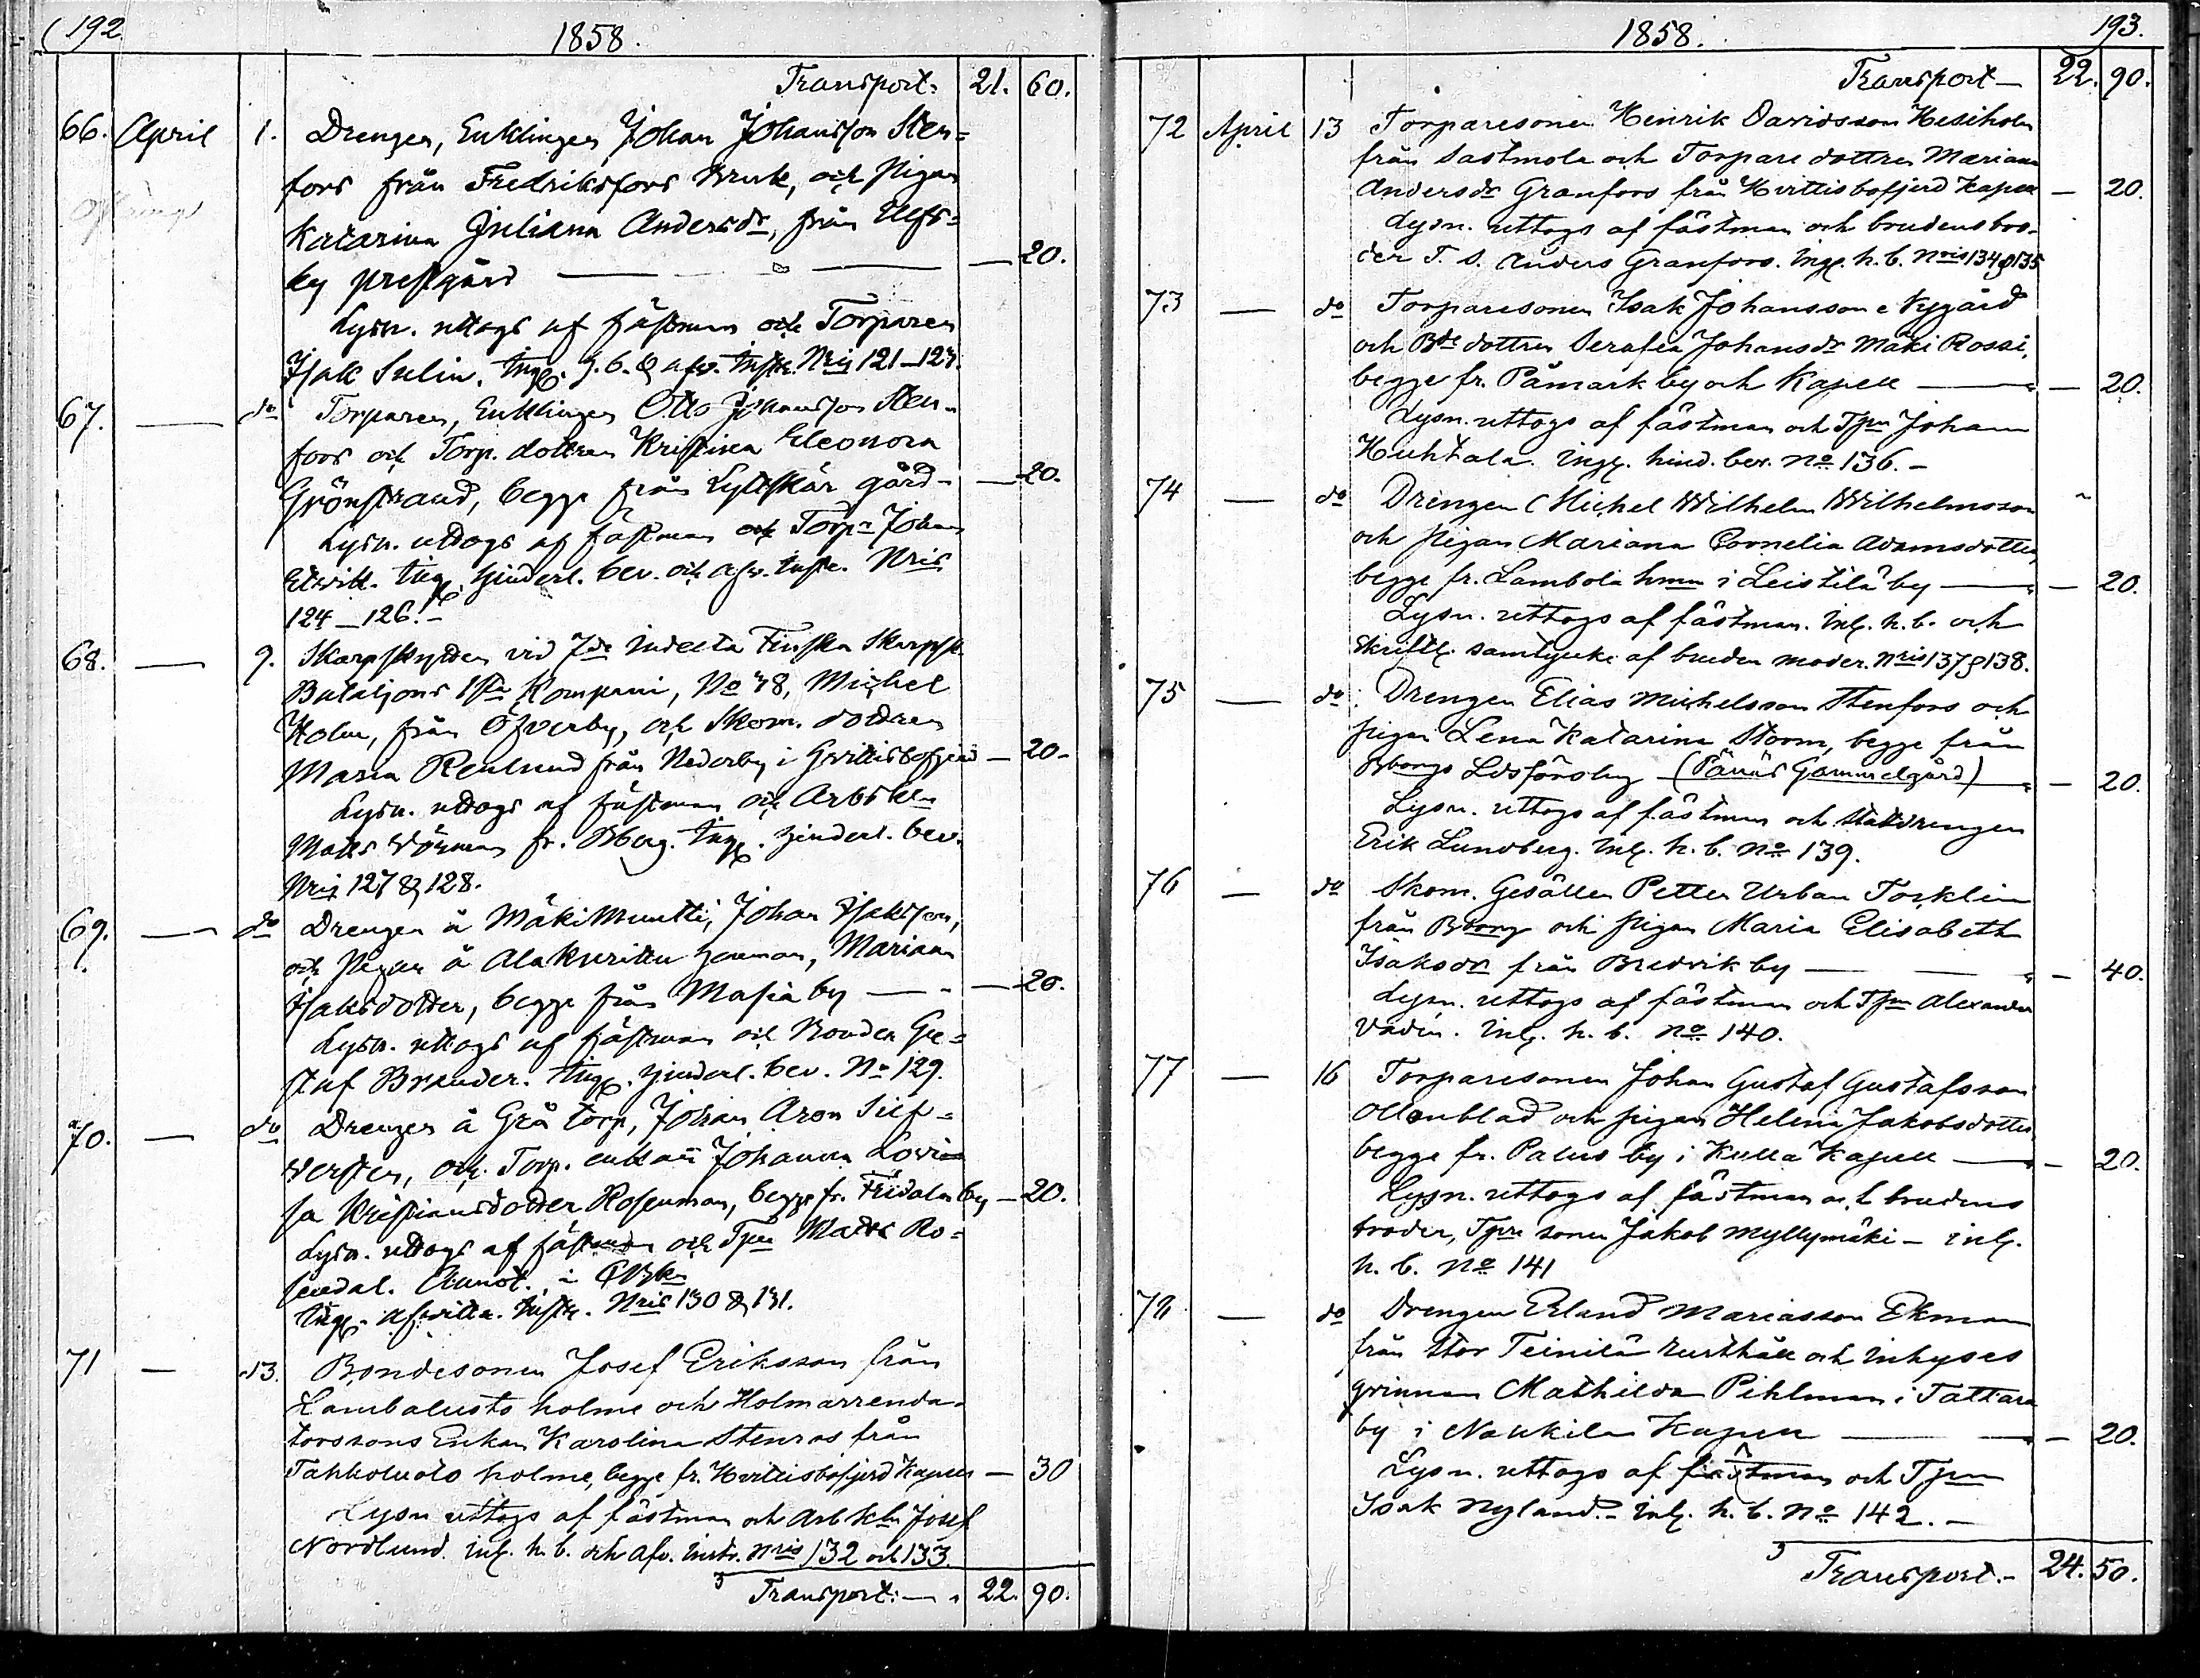 192.
1858.
Transport. 21. 60.
66. April 1. Drengen, Enklingen Johan Johansson Sten=
fors från Fredriksfors Bruk, och Pigan
Katarina Juliana Andersdr, från Ulfs=
by prestgård — — 20.
Lysn. uttogs af fästman och Torparen
Isak Sulin. Ingg. h. b. & afw. instr. Nris 121–123.
67. — do Torparen, Enklingen Otto Johansson Sten-
fors och Torp. dottren Kristina Eleonora
Grönstrand, begge från Lyttskär gård — 20.
Lysn. uttogs af fästman och Torpn Johan
Ingg. hinderl. bev. och afw. instr. Nris
124–126.
68. — 9. Skarpskytten vid 7de Indelta Finska Skarpsk.
Bataljons 1sta Kompani, No 78, Michel
Holm, från Öfverby, och Skom. dottren
Maria Renlund från Nederby i Hvittisbofjerd — 20.
Lysn. uttogs af fästman och Arbskln
Matts fr. Bborg. Ingg. hinderl. bev.
Nris 127 & 128.
69. — do Drengen å Mäkimuntti, Johan Isaksson,
och Pigan å Alakvittu hemman, Mariana
Isaksdotter, begge från Masia by — 20.
Lysn. uttogs af fästman och Bonden Gu=
staf Brander. Ingg. hinderl. bev. No 129.
70. — do Drengen å Grå torp, Johan Aron Silf=
versten, och Torp. enkan Johanna Lovi
sa Kristiansdotter Rosenman, begge fr. Fridala by — 20.
Lysn. uttogs af fästman och Tpn Matts Ro=
sendal. Annot. i
Ingg. afwitta. instr. Nris 130 & 131.
71 — 13. Bondesonen Josef Eriksson från
Lambaluoto holme och Holmarrenda-
torssons Enkan Karolina Stenros från
Tahkoluoto holme, begge fr. Hvittisbofjerd Kapell — 30
Lysn uttogs af fästman och Arb kln Josef
Nordlund. inl. h. b. och afv. instr. Nris 132 och 133.
Transport: — 22. 90.
1858. 193.
Transport — 22. 90.
72 April 13 Torparesonen Henrik Davidsson Hesiholm
från Sastmola och Torpare dottren Mariana
Andersdr Granfors från Hvittisbofjerd Kapell — 20.
Lysn. uttogs af fästman och brudens bro-
der T. s. Anders Granfors. Ingg. h. b. Nris 134 & 135
73 — do Torparesonen Isak Johansson Nygård
och Bde dottren Serafia Johansdr Mäki Rossi,
begge fr. Påmark by och Kapell — 20.
Lysn. uttogs af fästman och Tpn Johan
Huhtala. Ingg. hind. bev. No 136. –
74 — do Drengen Michel Wilhelm Wilhelmsson
och pigan Mariana Cornelia Adamsdotter,
begge fr. Lambola hmn i Leistilä by — 20.
Lysn. uttogs af fästman. Inl. h. b. och
skriftl. samtycke af bruden moder. Nris 137 & 138.
75 — do Drengen Elias Michelsson Stenfors och
pigan Lena Katarina Storm, begge från
Bborgs Ldsförsling (Pänäs Gammelgård) — 20.
Lysn. uttogs af fästman och Statdrengen
Erik Lundberg. Inl. h. b. No 139.
76 — do Skom. Gesällen Petter Urban Torklin
från Bborg och pigan Maria Elisabeth
Isaksdr från Bredvik by — 40.
Lysn. uttogs af fästman och Tpn Alexander
Vadén. Inl. h. b. No 140.
77 — 16 Torparesonen Johan Gustaf Gustafsson
Ollonblad och pigan Helena Jakobsdotter
begge fr. Palus by i Kulla Kapell — 20.
Lysn. uttogs af fästman och brudens
broder, Tpre sonen Jakob Myllymäki – inl.
h. b. No 141
78 — do Drengen Erland Mariasson Ekman
från Stor Teinilä rusthåll och Inhyses
qvinnan Mathilda Pihlman i Tattara
by i Nakkila Kapell — 20.
Lysn. uttogs af fästman och Tpn
Isak Nyland. – Inl. h. b. No 142. –
Transport. – 24. 50.